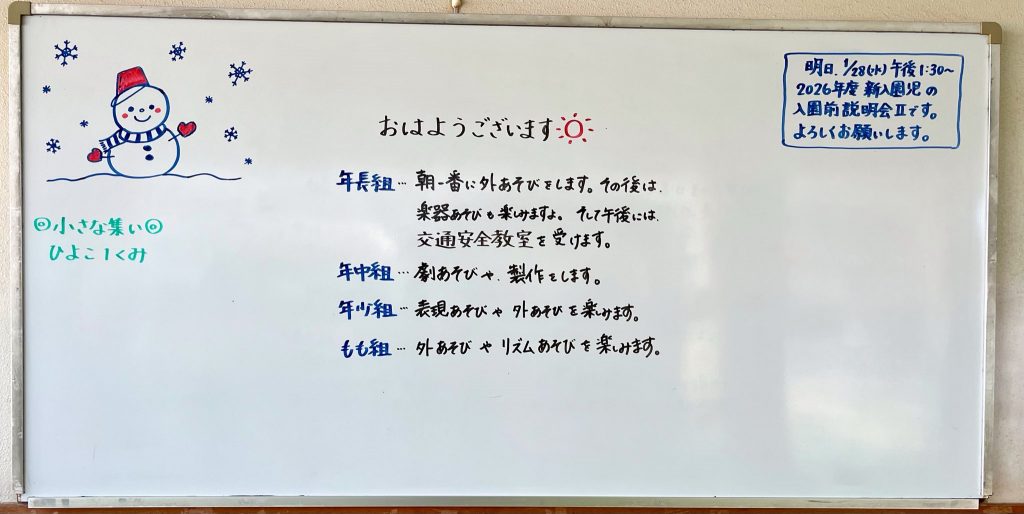 おはようございます
明日、1/28(水)午後1:30〜
2026年度 新入園児の
入園前説明会Ⅱです。
よろしくお願いします。
◎小さな集い◎
ひよこ1くみ
年長組… 朝一番に外あそびをします。その後は、
楽器あそびも楽しみますよ。そして午後には、
交通安全教室を受けます。
年中組… 劇あそびや、製作をします。
年少組… 表現あそびや外あそびを楽しみます。
もも組… 外あそびやリズムあそびを楽しみます。